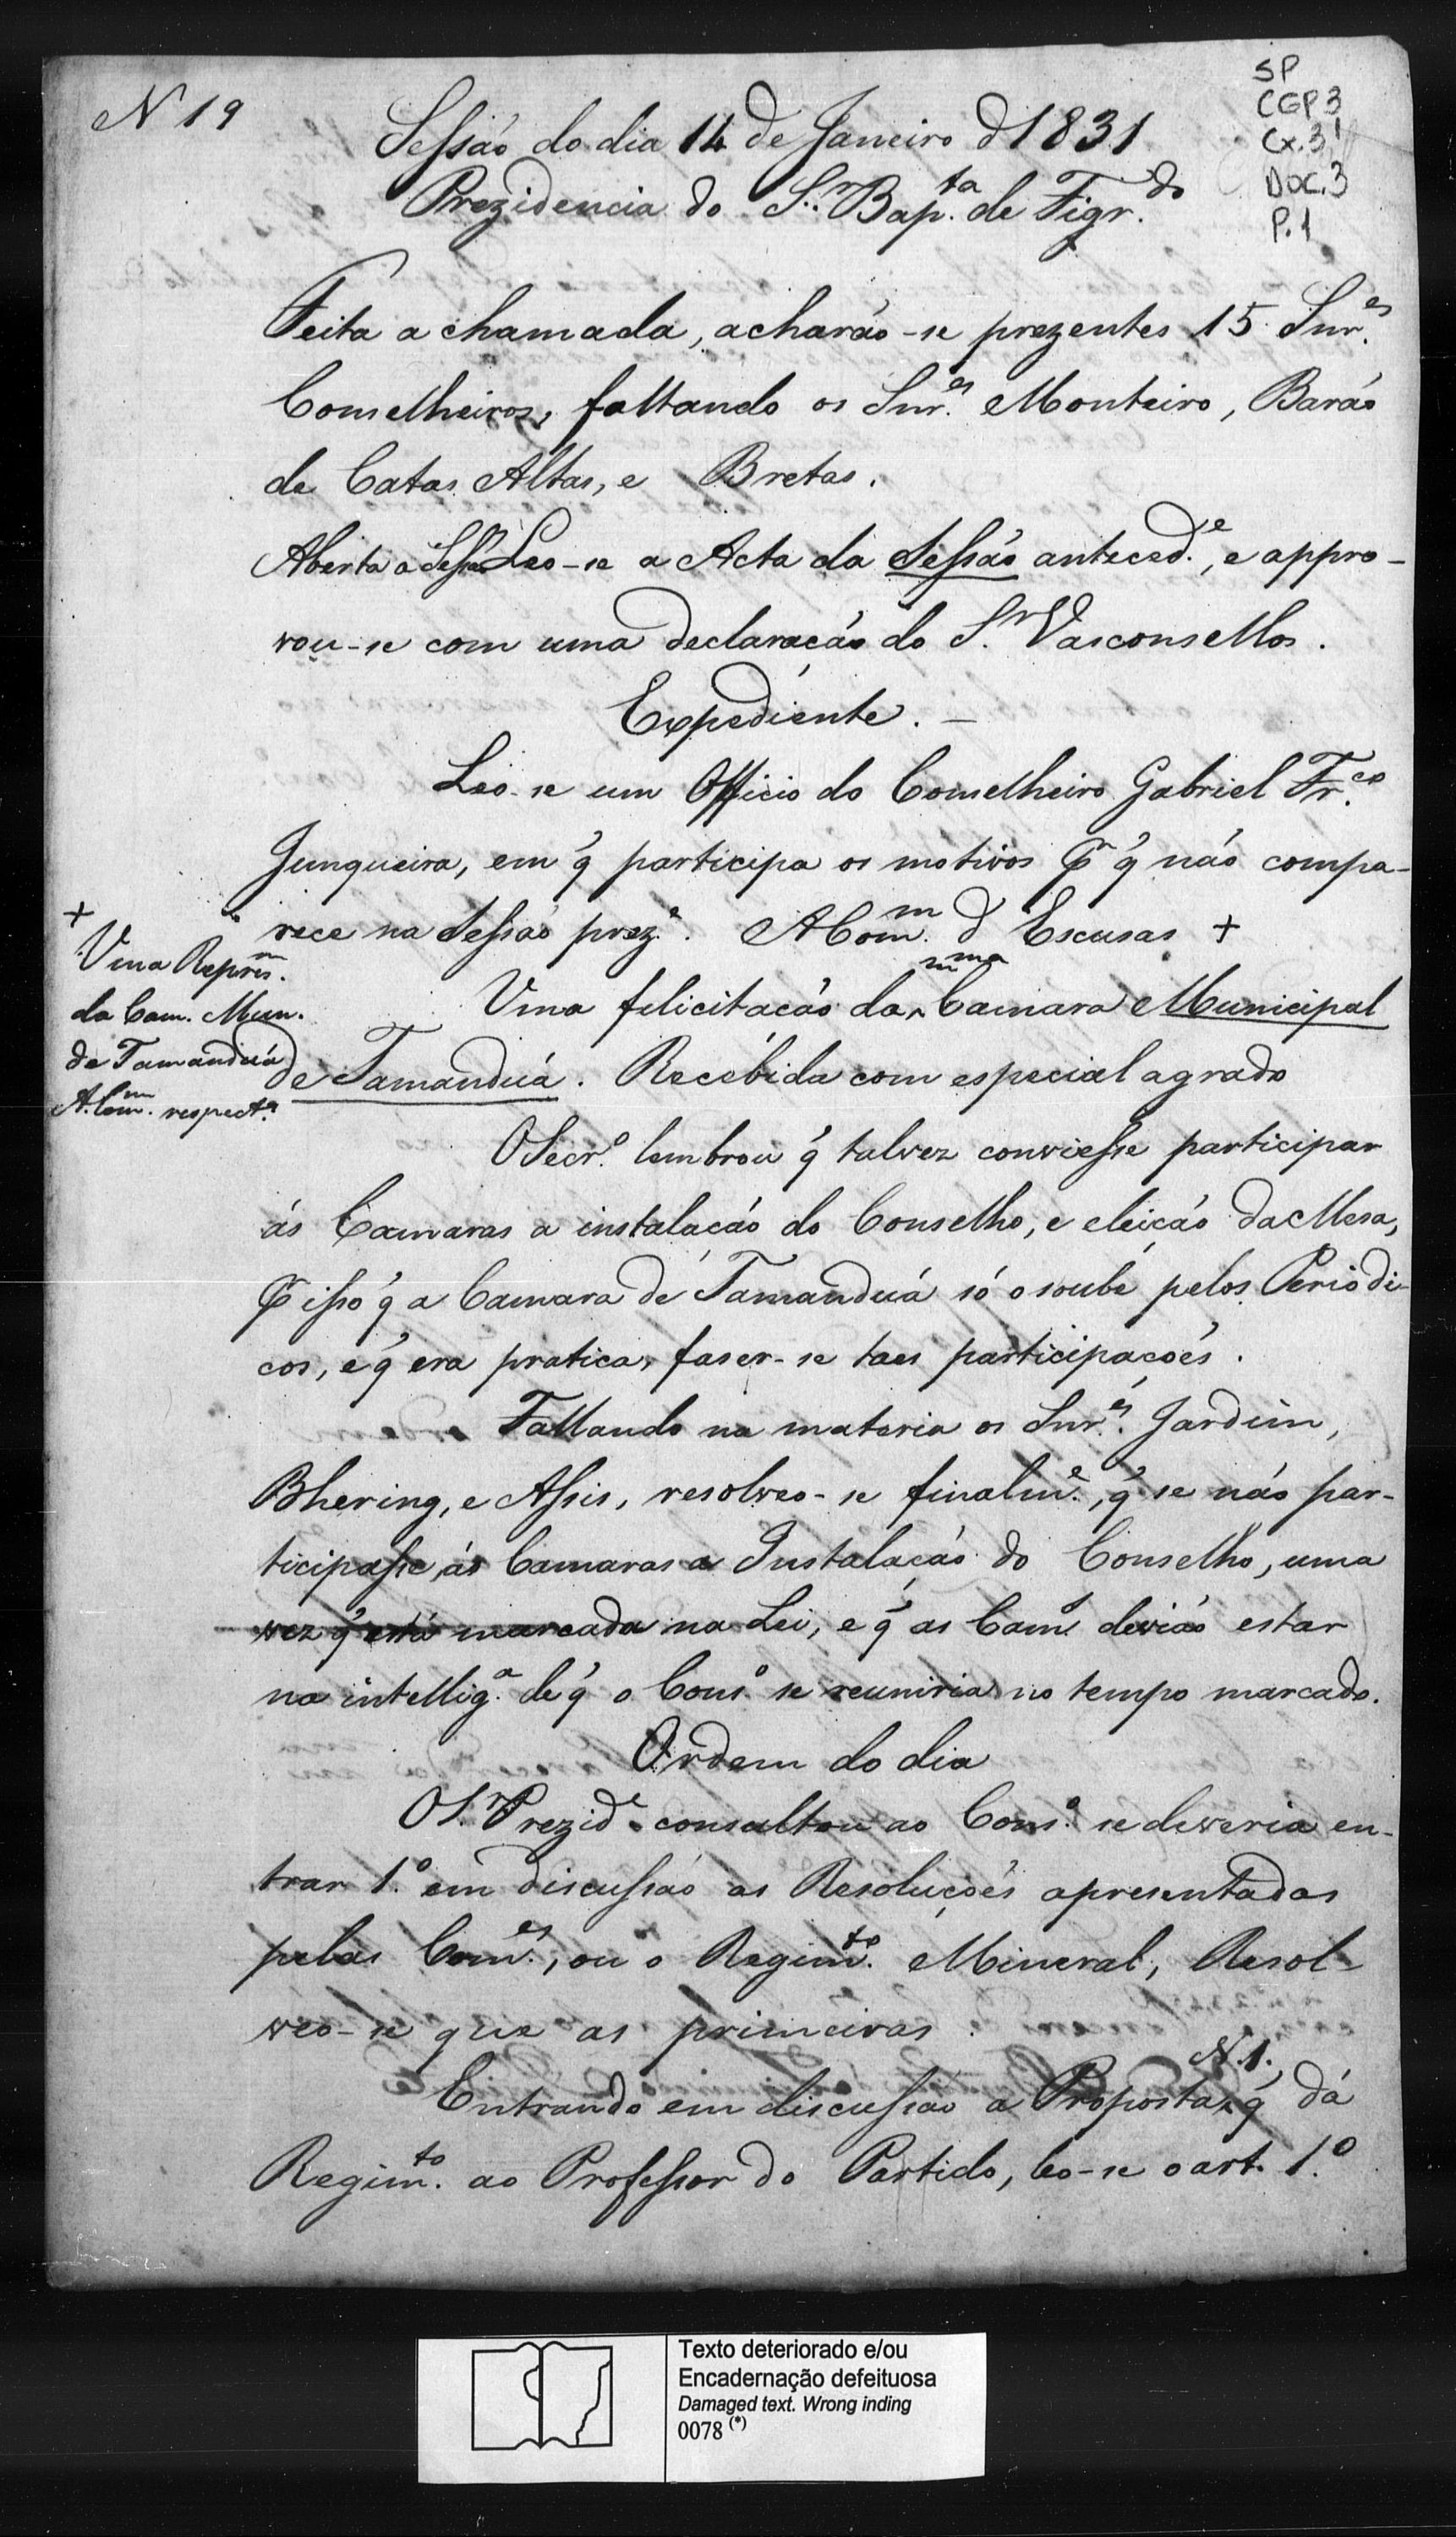 N 19
SP
CGP 3
Cx. 31
DOC. 3
P. 1
Sessaõ do dia 14 de Janeiro d 1831
Prezidencia do S.r Bap.ta de Figr.do
Feita a chamada, acharaõ-se prezentes 15 Snr.es
Conselheiros, faltando os Snr.es Monteiro, Baraõ
de Catas Altas, e Bretas.
Aberta a Sessaõ Leo-se a Acta da Sessaõ anteced.e, e appro-
vou-se com uma declaracaõ do S.r Vasconsellos.
Expediente. —
Leo-se um Officio do Conselheiro Gabriel Fr.co
Junqueira, em q̃ participa os motivos pr q̃ naõ compa-
rece na Sessaõ prez.e. A Com.m d Escusas +
+
Uma Repres.m
da Cam. Mun.
de Tamanduá
A Com.m respect.a
Uma felicitacaõ da mma Camara Municipal
de Tamanduá. Recebida com especial agrado
O Secr.o lembrou q̃ talvez conviesse participar
ás Camaras a instalacaõ do Conselho, e eleiçaõ da Mesa,
pr isso q̃ a Camara de Tamanduá só o soube pelos Periodi-
cos, e q̃ era pratica, faser-se taes participacoẽs.
Fallando na materia os Snr.es Jardim,
Bhering, e Assis, resolveo-se finalm.e, q̃ se naõ par-
ticipasse ás Camaras a Instalacaõ do Conselho, uma
vez q̃ está marcada na Lei, e q̃ as Cam.s deviaõ estar
na intellig.a de q̃ o Cons.o se reuniria no tempo marcado.
Ordem do dia
O S.r Prezid.e consultou ao Cons.o se deveria en-
trar 1.o em discussaõ as Resoluçoẽs apresentadas
pelas Com.es, ou o Regim.to Mineral, Resol-
veo-se que as primeiras.
Entrando em discussaõ a Proposta N. 1., q̃ dá
Regim.to ao Professor do Partido, leo-se o art. 1.o
Texto deteriorado e/ou
Encadernação defeituosa
Damaged text. Wrong inding
0078 (*)